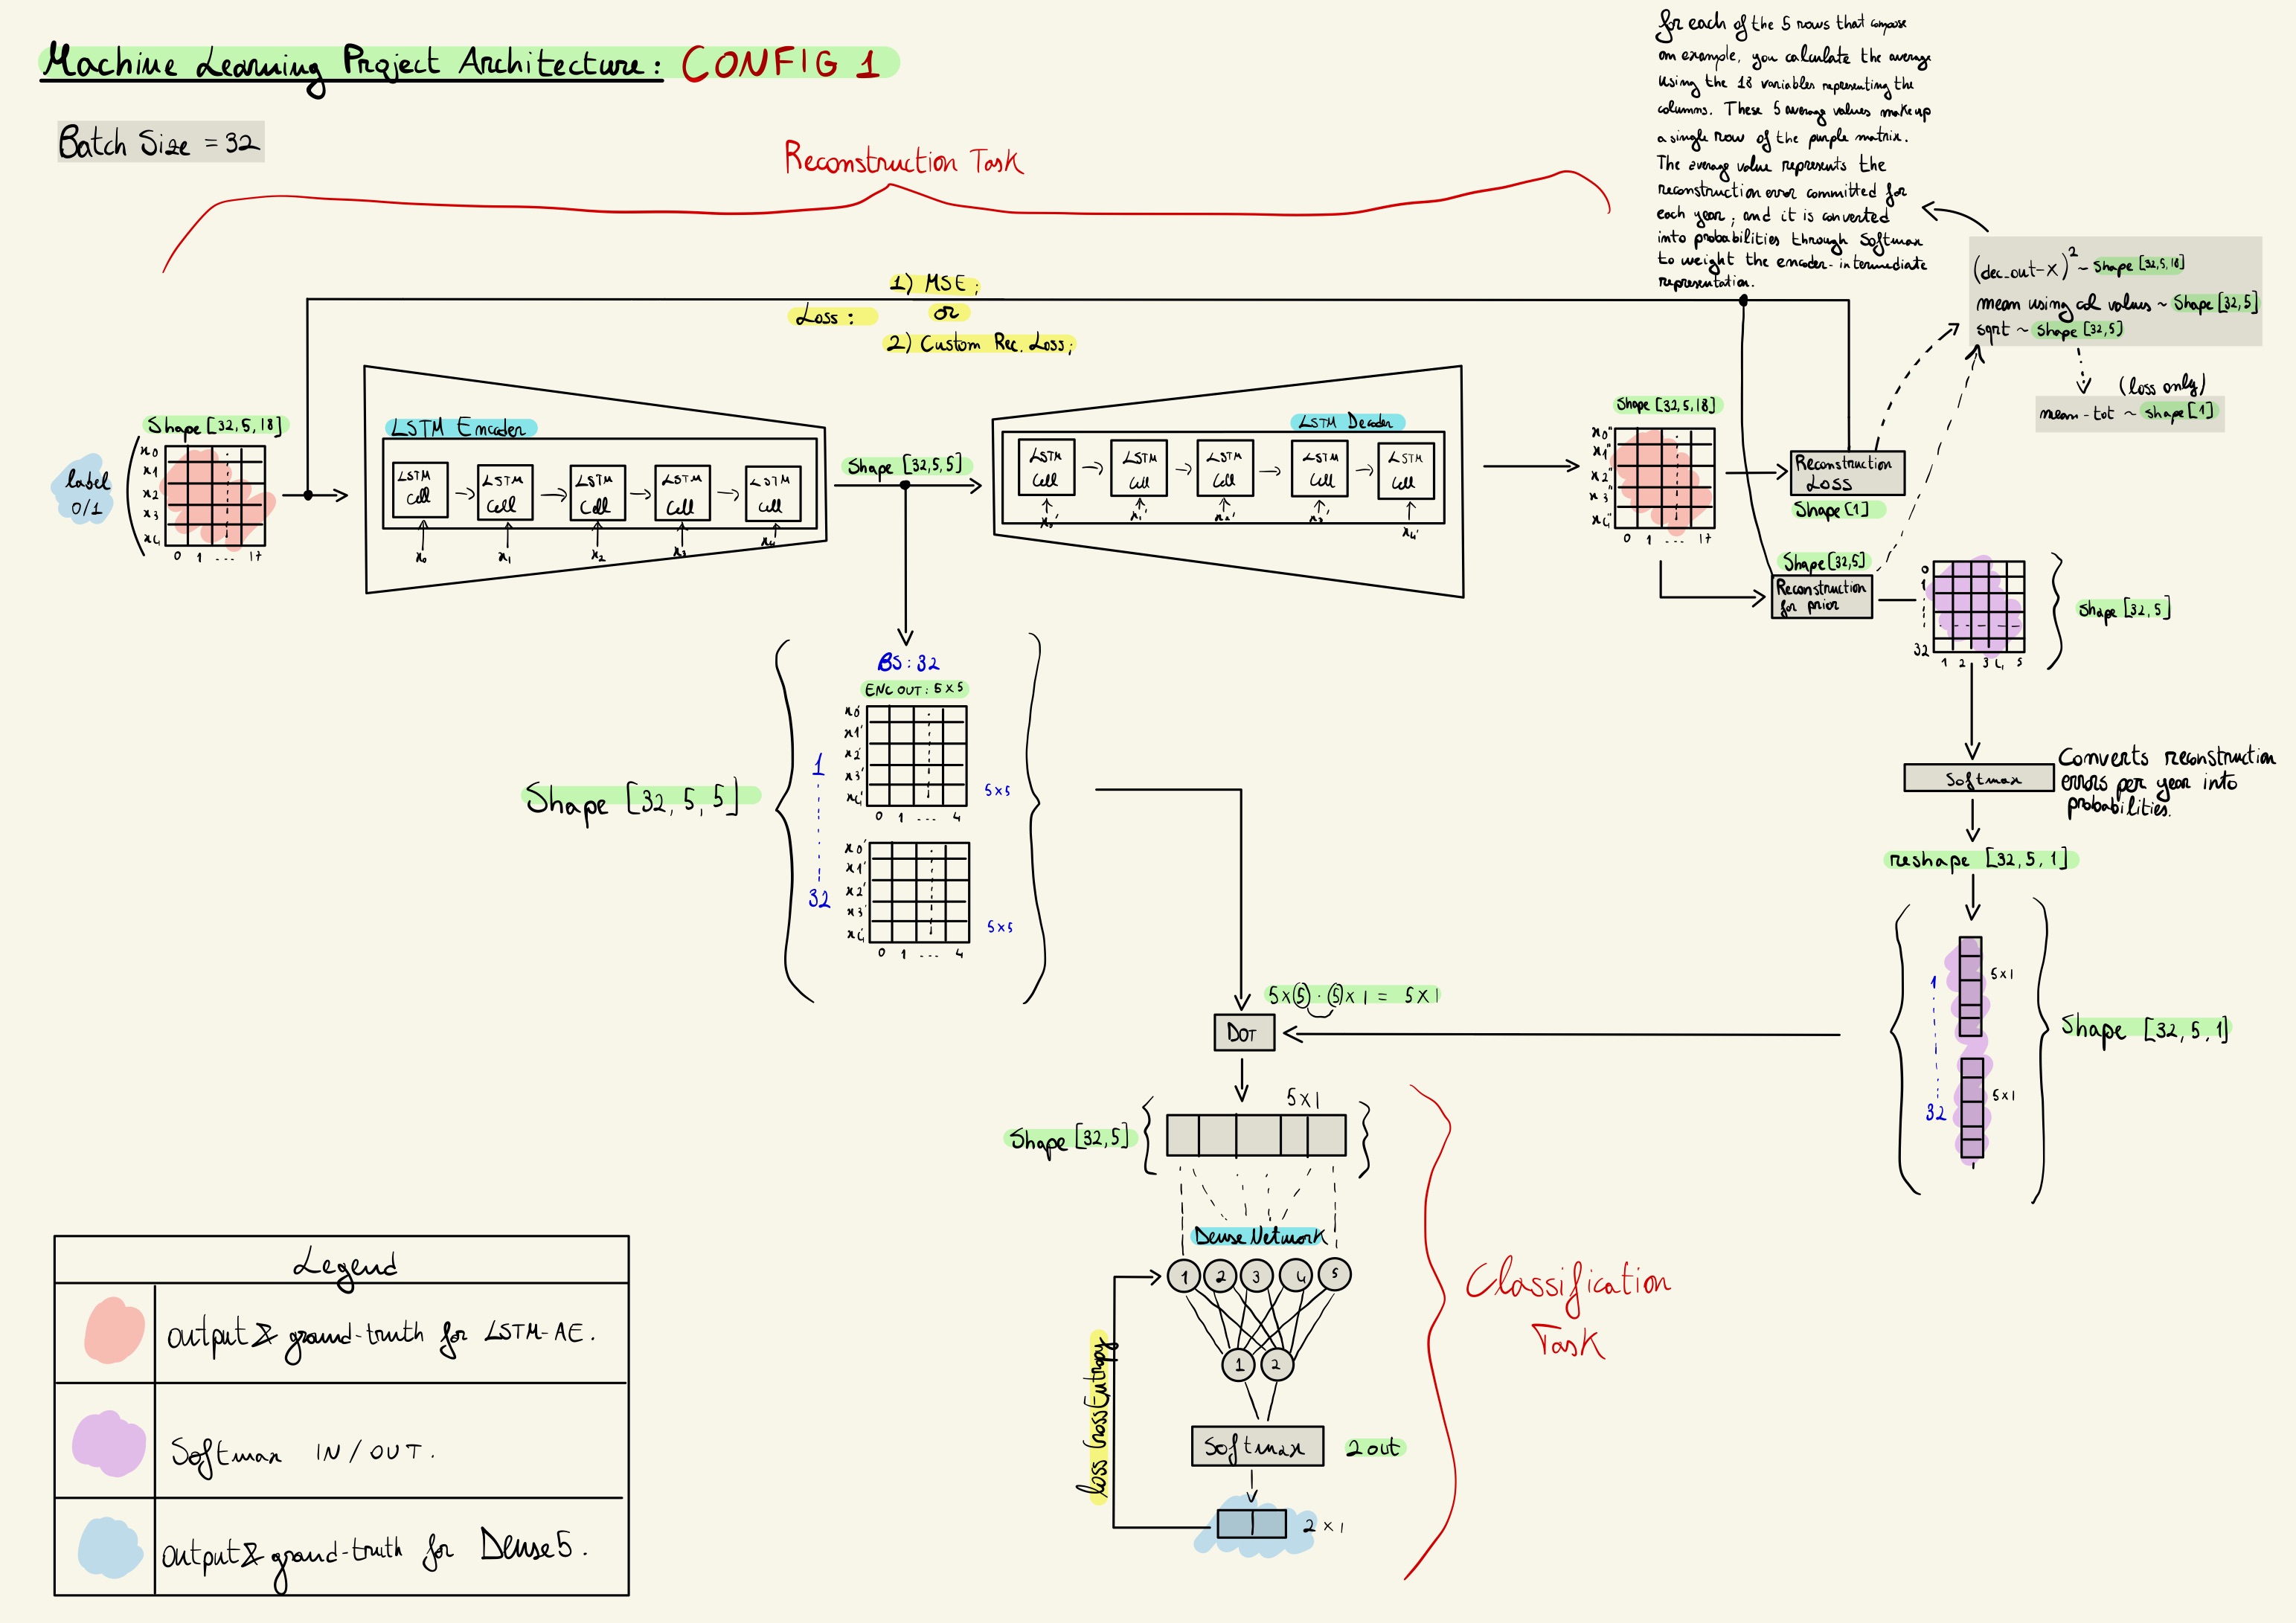 Machine Learning Project Architecture: CONFIG 1
Batch Size = 32
Reconstruction Task
for each of the 5 rows that compose
an example, you calculate the average
using the 18 variables representing the
columns. These 5 average values make up
a single row of the purple matrix.
The average value represents the
reconstruction error committed for
each year, and it is converted
into probabilities through Softmax
to weight the encoder-intermediate
representation.
(dec_out-x)² ~ Shape [32,5,18]
mean using col values ~ Shape [32,5]
sqrt ~ Shape [32,5]
(loss only)
mean-tot ~ Shape [1]
Loss:
1) MSE;
or
2) Custom Rec. Loss;
label
0/1
Shape [32,5,18]
x0
x1
x2
x3
x4
0 1 ... 17
LSTM Encoder
LSTM Cell
LSTM Cell
LSTM Cell
LSTM Cell
LSTM Cell
x0 x1 x2 x3 x4
Shape [32,5,5]
LSTM Decoder
LSTM Cell
LSTM Cell
LSTM Cell
LSTM Cell
LSTM Cell
x0' x1' x2' x3' x4'
Shape [32,5,18]
x0"
x1"
x2"
x3"
x4"
0 1 ... 17
Reconstruction
Loss
Shape [1]
Shape [32,5]
Reconstruction
for prior
0
1
32
1 2 3 4 5
Shape [32,5]
Softmax
Converts reconstruction
errors per year into
probabilities.
reshape [32,5,1]
1
32
5x1
5x1
Shape [32,5,1]
BS: 32
ENC OUT: 5x5
Shape [32,5,5]
1
32
x0'
x1'
x2'
x3'
x4'
0 1 ... 4
5x5
x0'
x1'
x2'
x3'
x4'
0 1 ... 4
5x5
5x5 · 5x1 = 5x1
DOT
5x1
Shape [32,5]
Dense Network
1 2 3 4 5
1 2
loss CrossEntropy
Softmax
2 out
2x1
Classification
Task
Legend
output & ground-truth for LSTM-AE.
Softmax IN/OUT.
output & ground-truth for Dense5.